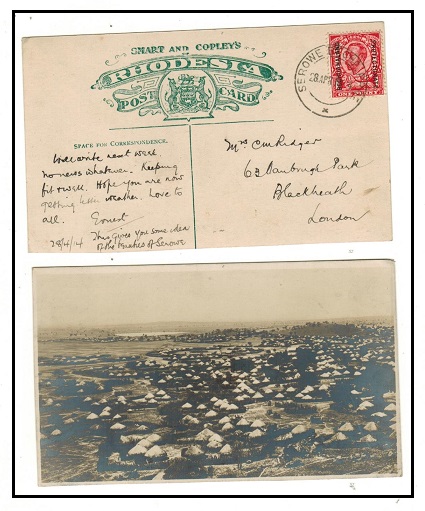 SMART AND COPLEY'S
RHODESIA
POST CARD
SPACE FOR CORRESPONDENCE.
Will write next week.
no news whatever. Keeping
fit &amp; well. Hope you are now
getting better weather. Love to
all. Ernest
28/4/14 This gives you some idea
of the huts of Serowe
Mrs
62 Vanbrugh Park
Blackheath
London
SEROWE
28 AP
ONE PENNY